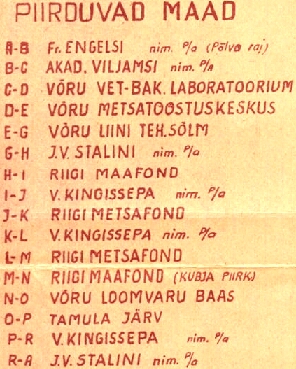 PIIRDUVAD MAAD
A-B Fr. ENGELSI nim. P/a (Põlva raj)
B-C AKAD. VILJAMSI nim. P/a
C-D VÕRU VET-BAK. LABORATOORIUM
D-E VÕRU METSATÖÖSTUSKESKUS
E-G VÕRU LIINI TEH. SÕLM
G-H J.V. STALINI nim. P/a
H-I RIIGI MAAFOND
I-J V. KINGISSEPA nim. P/a
J-K RIIGI METSAFOND
K-L V. KINGISSEPA nim. P/a
L-M RIIGI METSAFOND
M-N RIIGI MAAFOND (KUBJA PIIRK)
N-O VÕRU LOOMVARU BAAS
O-P TAMULA JÄRV
P-R V. KINGISSEPA nim. P/a
R-A J.V. STALINI nim. P/a